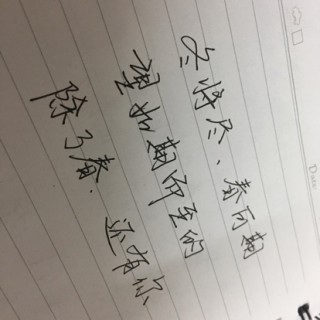 冬将尽、春可期
望如期而至的
除了春.还有你
Date